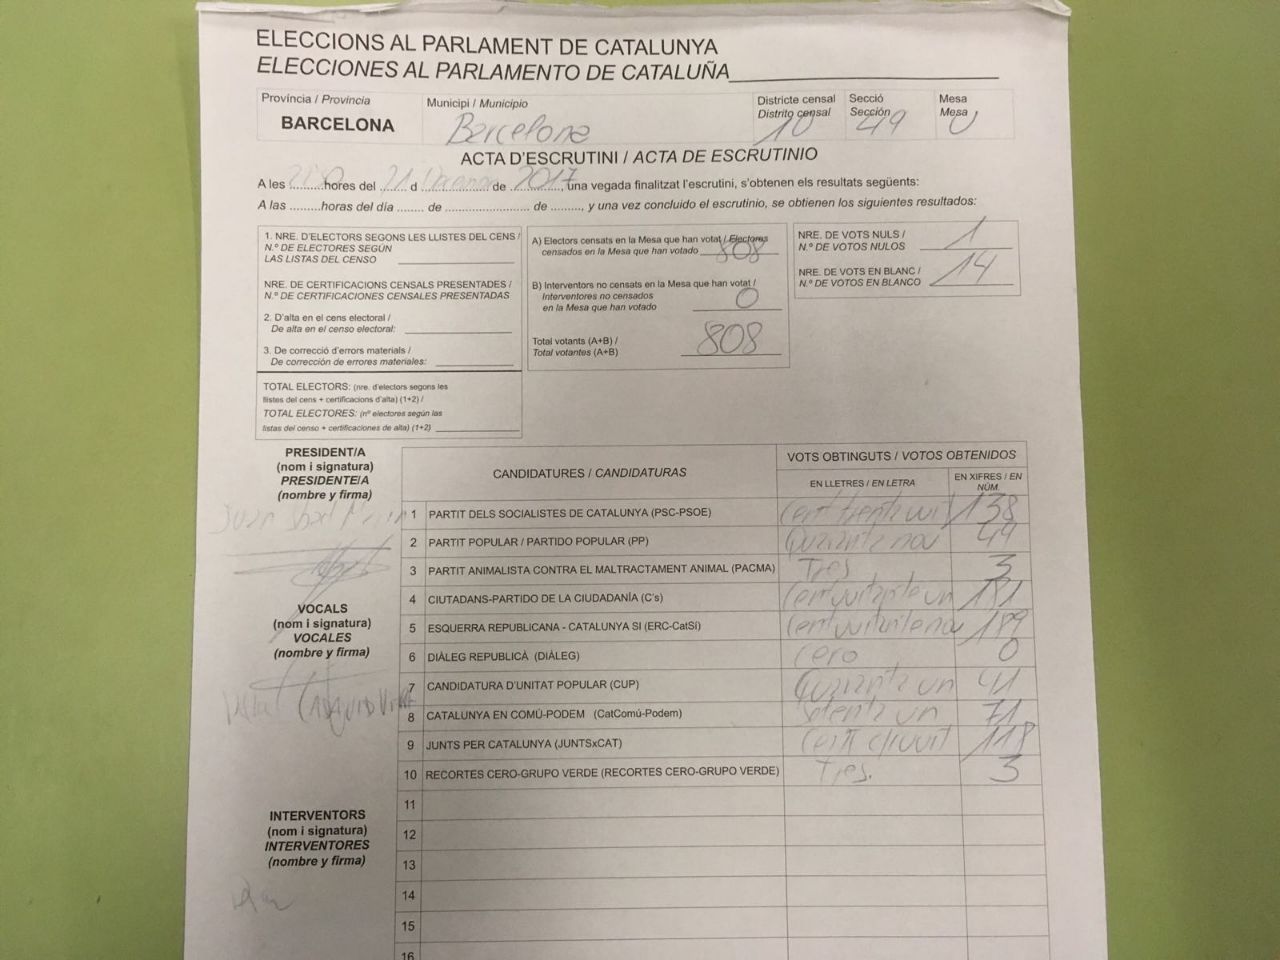 ELECCIONS AL PARLAMENT DE CATALUNYA
ELECCIONES AL PARLAMENTO DE CATALUÑA
Província / Provincia
BARCELONA
Municipi / Municipio
Barcelona
Districte censal
Distrito censal
10
Secció
Sección
49
Mesa
Mesa
U
ACTA D'ESCRUTINI / ACTA DE ESCRUTINIO
A les hores del 21 d de 2017, una vegada finalitzat l'escrutini, s'obtenen els resultats següents:
A las .........horas del día ....... de ........................ de ........, y una vez concluido el escrutinio, se obtienen los siguientes resultados:
1. NRE. D'ELECTORS SEGONS LES LLISTES DEL CENS /
N.º DE ELECTORES SEGÚN
LAS LISTAS DEL CENSO
NRE. DE CERTIFICACIONS CENSALS PRESENTADES /
N.º DE CERTIFICACIONES CENSALES PRESENTADAS
2. D'alta en el cens electoral /
De alta en el censo electoral:
3. De correcció d'errors materials /
De corrección de errores materiales:
TOTAL ELECTORS: (nre. d'electors segons les
llistes del cens + certificacions d'alta) (1+2) /
TOTAL ELECTORES: (nº electores según las
listas del censo + certificaciones de alta) (1+2)
A) Electors censats en la Mesa que han votat / Electores
censados en la Mesa que han votado 808
B) Interventors no censats en la Mesa que han votat /
Interventores no censados
en la Mesa que han votado 0
Total votants (A+B) /
Total votantes (A+B) 808
NRE. DE VOTS NULS /
N.º DE VOTOS NULOS 1
NRE. DE VOTS EN BLANC /
N.º DE VOTOS EN BLANCO 14
PRESIDENT/A
(nom i signatura)
PRESIDENTE/A
(nombre y firma)
VOCALS
(nom i signatura)
VOCALES
(nombre y firma)
INTERVENTORS
(nom i signatura)
INTERVENTORES
(nombre y firma)
CANDIDATURES / CANDIDATURAS
VOTS OBTINGUTS / VOTOS OBTENIDOS
EN LLETRES / EN LETRA
EN XIFRES / EN NÚM.
1 PARTIT DELS SOCIALISTES DE CATALUNYA (PSC-PSOE) Cent trenta vuit 138
2 PARTIT POPULAR / PARTIDO POPULAR (PP) Quaranta nou 49
3 PARTIT ANIMALISTA CONTRA EL MALTRACTAMENT ANIMAL (PACMA) Tres 3
4 CIUTADANS-PARTIDO DE LA CIUDADANÍA (C's) Cent vuitanta un 181
5 ESQUERRA REPUBLICANA - CATALUNYA SI (ERC-CatSí) Cent vuitanta nou 189
6 DIÀLEG REPUBLICÀ (DIÀLEG) Cero 0
7 CANDIDATURA D'UNITAT POPULAR (CUP) Quaranta un 41
8 CATALUNYA EN COMÚ-PODEM (CatComú-Podem) Setenta un 71
9 JUNTS PER CATALUNYA (JUNTSxCAT) Cent divuit 118
10 RECORTES CERO-GRUPO VERDE (RECORTES CERO-GRUPO VERDE) Tres. 3
11
12
13
14
15
16